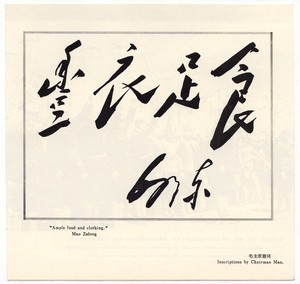 豐衣足食
澤東
"Ample food and clothing."
Mao Zedong
毛主席題詞
Inscriptions by Chairman Mao.